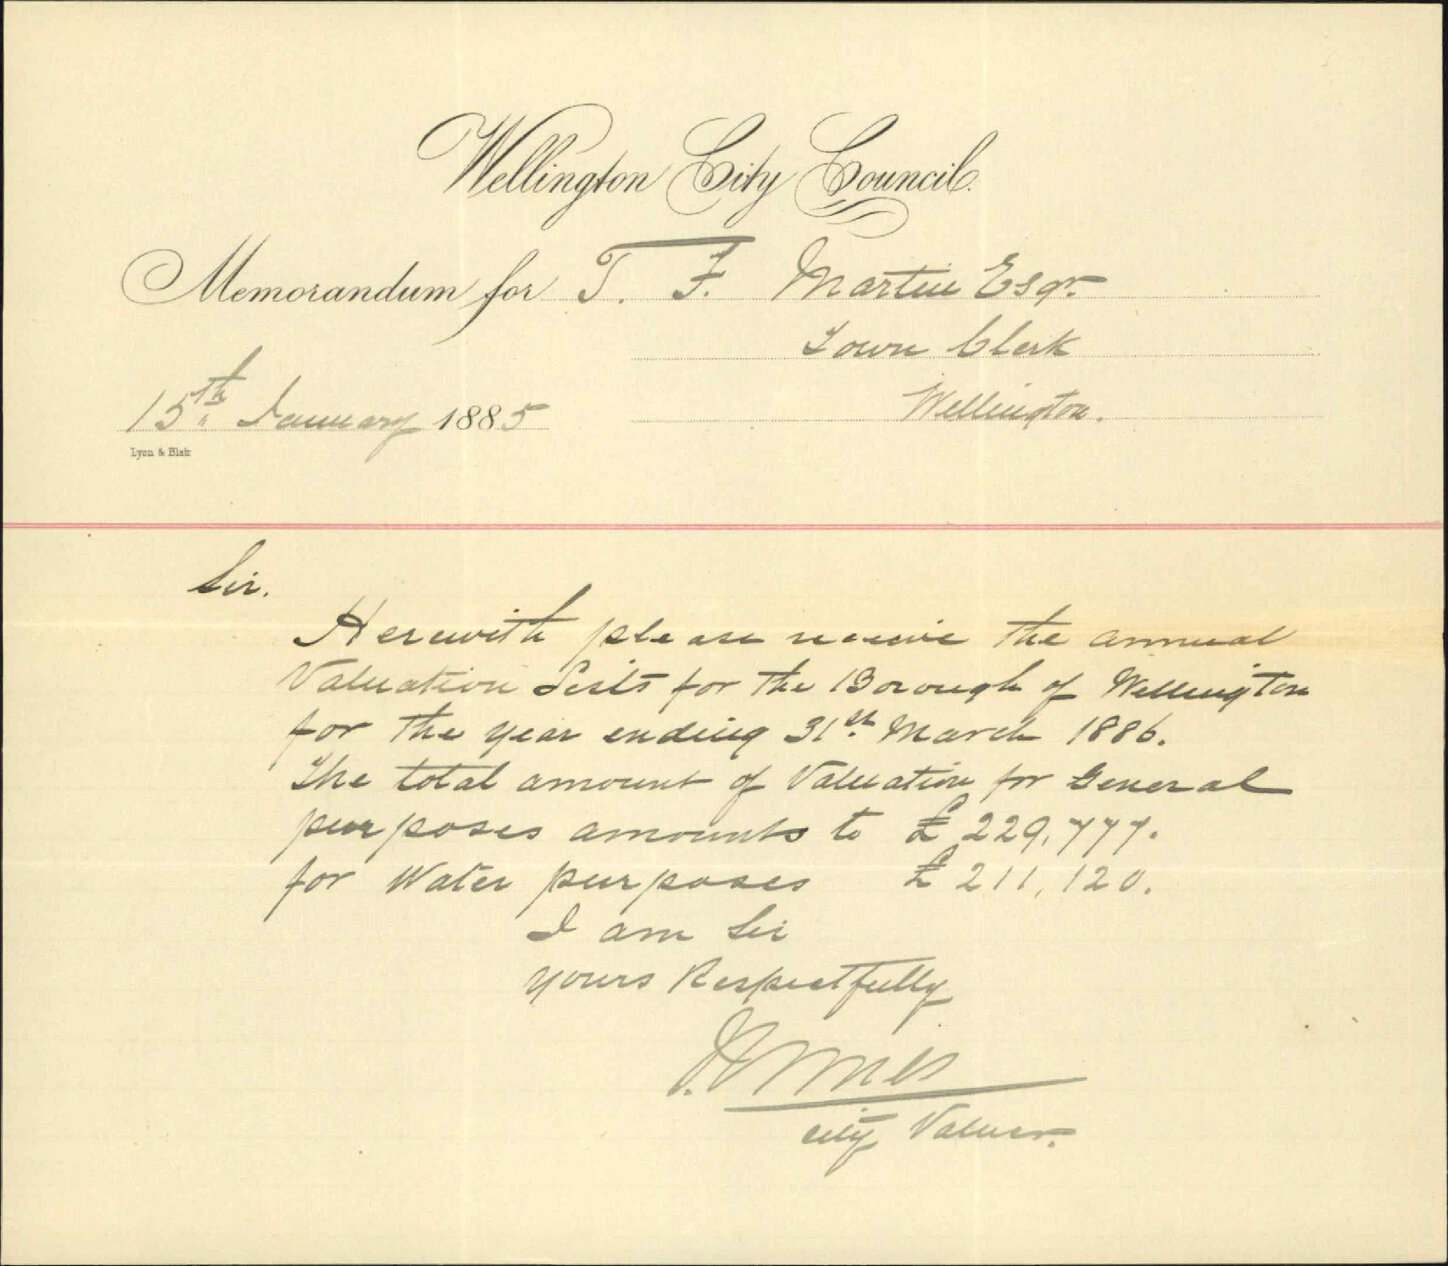 Wellington City Council.
Memorandum for T. F. Martin Esqr.
Town Clerk
15th. January 1885 Wellington.
Lyon & Blair
Sir.
Herewith please receive the annual
Valuation Lists for the Borough of Wellington
for the year ending 31st. March 1886.
The total amount of Valuation for General
purposes amounts to £229,777.
for Water purposes £211,120.
I am Sir
yours Respectfully
City Valuer.